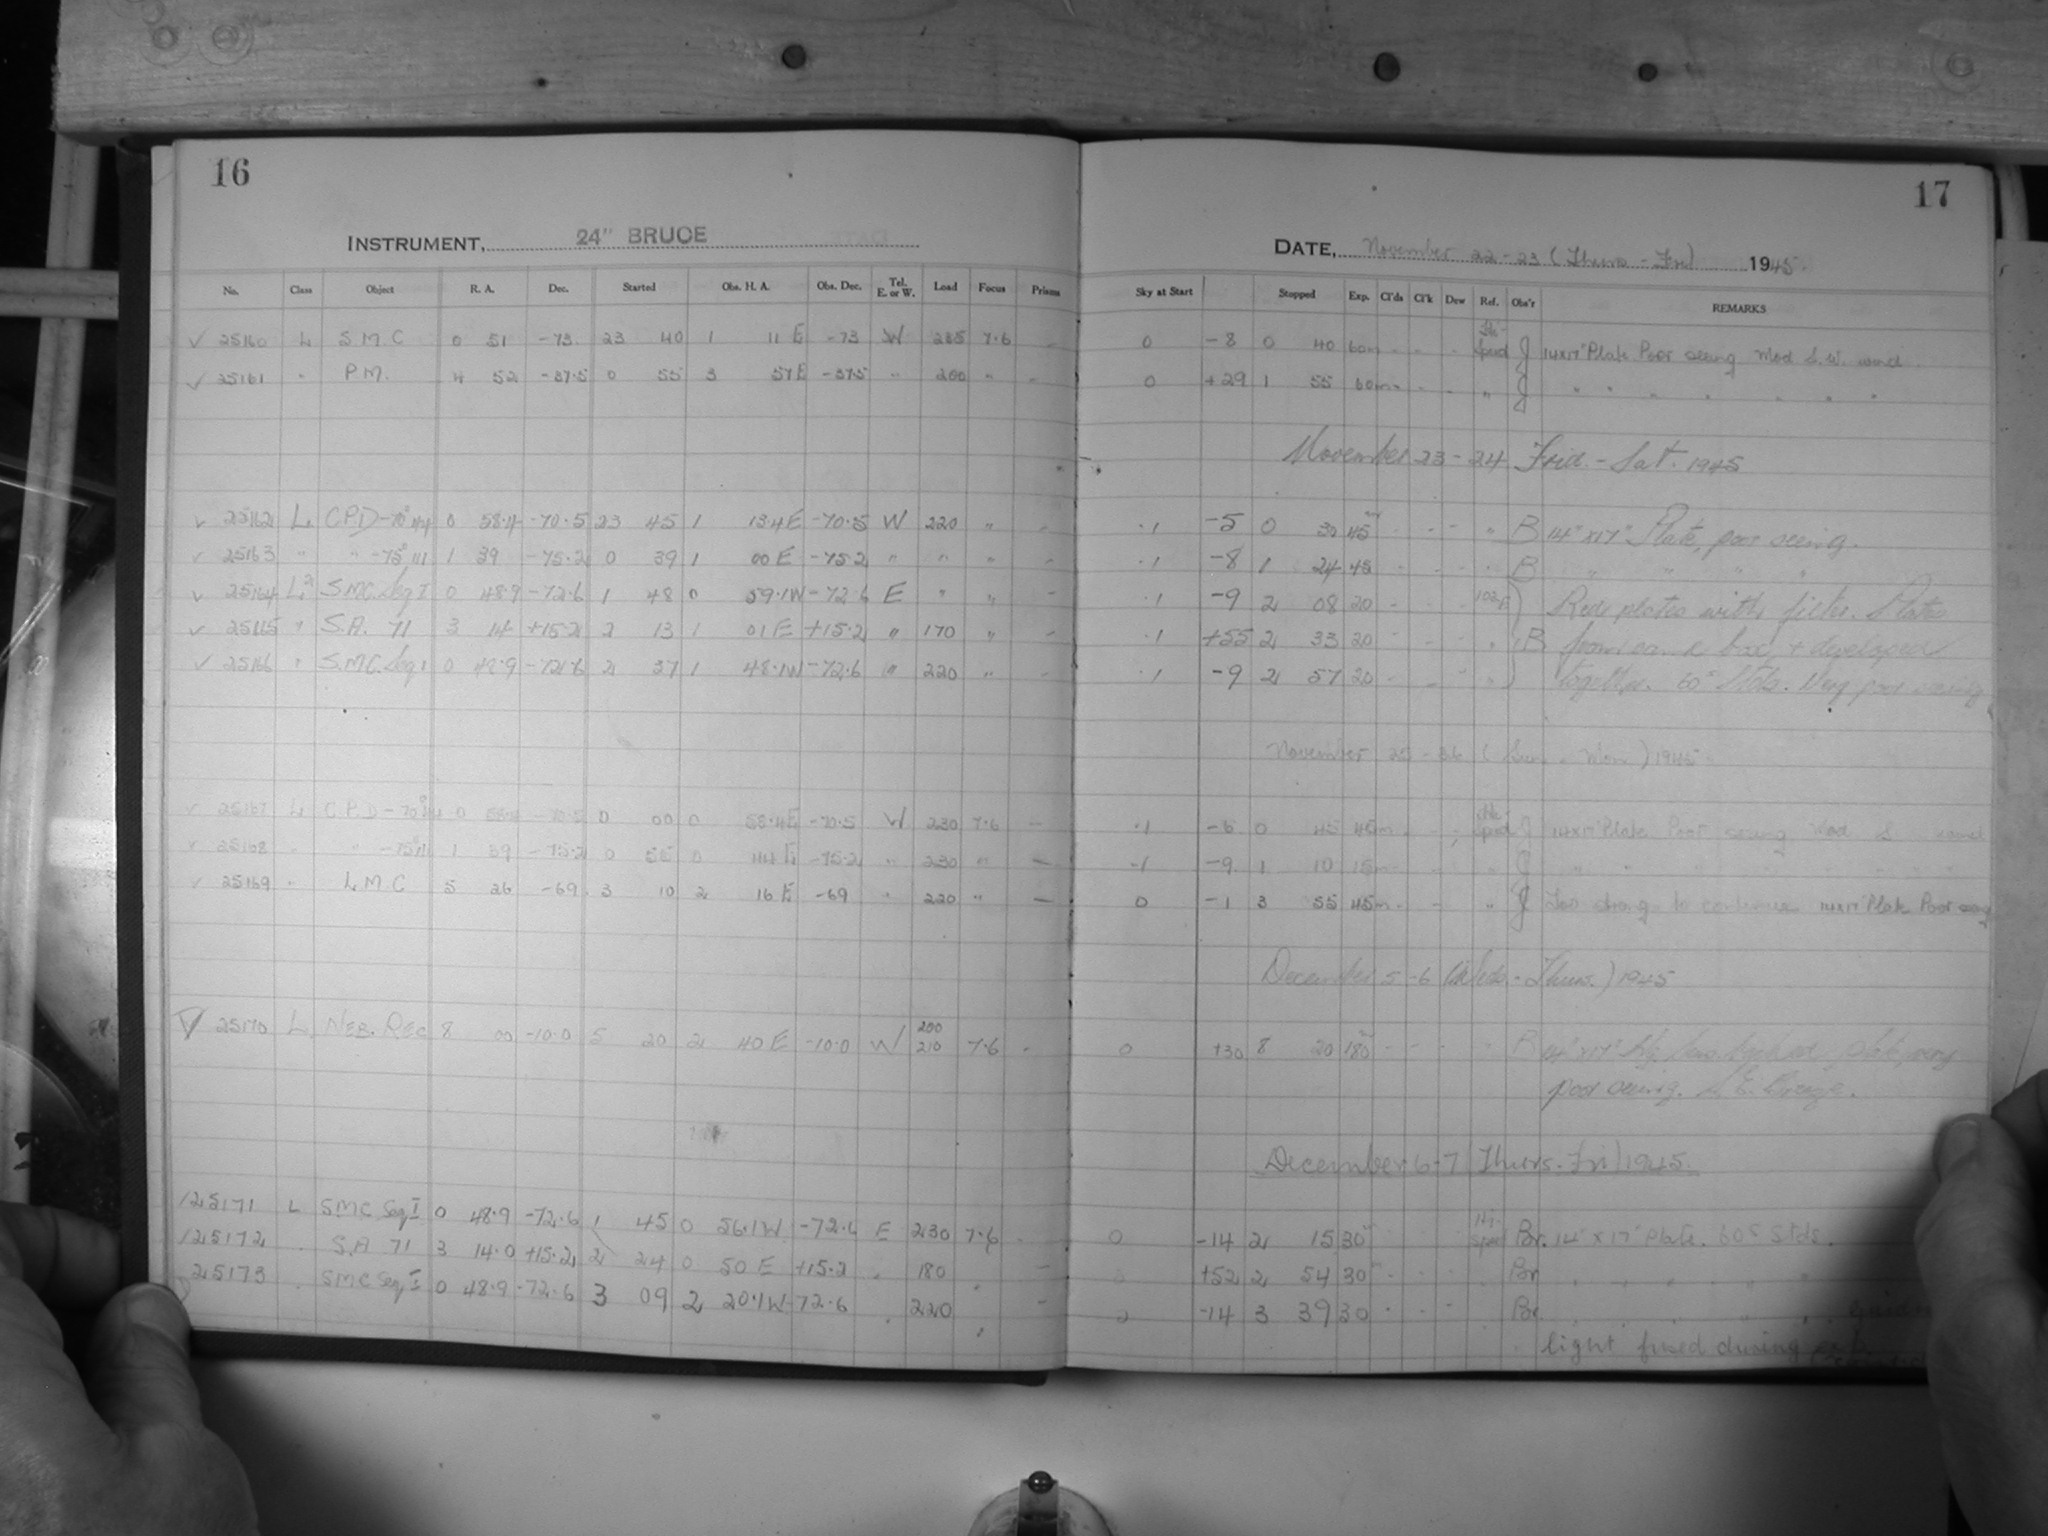 16
INSTRUMENT, 24" BRUCE
No. Class Object R. A. Dec. Started Obs. H. A. Obs. Dec. Tel. E. or W. Load Focus Prisms
✓ 25160 L S.M.C 0 51 -73. 23 40 1 11 E -73 W 235 7.6 –
✓ 25161 " P.M. 4 52 -37.5 0 55 3 57 E -37.5 " 200 " –
✓ 25162 L C.P.D -70° 44 0 58.4 -70.5 23 45 1 13.4 E -70.5 W 220 " –
✓ 25163 " " -75° 111 1 39 -75.2 0 39 1 00 E -75.2 " " " –
✓ 25164 L S.M.C. Seq I 0 48.9 -72.6 1 48 0 59.1 W -72.6 E " "
✓ 25165 " S.A. 71 3 14 +15.2 2 13 1 01 E +15.2 " 170 " –
✓ 25166 " S.M.C. Seq I 0 48.9 -72.6 2 37 1 48.1 W -72.6 " 220 " –
✓ 25167 L C.P.D -70° 0 58.4 -70.5 0 00 0 58.4 E -70.5 W 230 7.6 –
✓ 25168 " " -75° 1 39 -75.2 0 55 0 44 E -75.2 " 230 " –
✓ 25169 " L.M.C 5 26 -69. 3 10 2 16 E -69 " 220 " –
25170 L NEB. REC 8 00 -10.0 5 20 2 40 E -10.0 W 200 210 7.6 -
/25171 L SMC Seq I 0 48.9 -72.6 1 45 0 56.1 W -72.6 E 230 7.6 -
/25172 . S.A 71 3 14.0 +15.2 2 24 0 50 E +15.2 " 180 " –
25173 . SMC Seq I 0 48.9 -72.6 3 09 2 20.1 W -72.6 " 220 " –
17
DATE, November 22-23 (Thurs - Fri) 1945.
Sky at Start Stopped Exp. Cl'ds Cl'k Dew Ref. Obs'r REMARKS
0 -8 0 40 60m - - - Speed J 14x17" Plate Poor seeing Mod S.W. wind
0 +29 1 55 60m - - - " J " " " " " " "
November 23-24 Frid. - Sat. 1945
.1 -5 0 30 45 - - - " B 14" x 17" Plate, poor seeing.
.1 -8 1 24 45 - - - " B " " " "
.1 -9 2 08 20 - - - Red plates with filter. Plates
.1 +55 2 33 20 - - - " B from same box, + developed
.1 -9 2 57 20 - - - " together. 60s Stds. Very poor seeing
November 25-26 (Sun - Mon) 1945
.1 -6 0 45 45m - - - Speed J 14x17" Plate Poor seeing Mod S wind
.1 -9 1 10 15m - - - " J " " " " " " "
0 -1 3 55 45m - - - " J to continue 14x17" Plate Poor seeing
December 5-6 (Weds - Thurs.) 1945
0 +30 8 20 180 - - - " B 14" x 17" plate, very
poor seeing. S. E. Breeze.
December 6-7 (Thurs. Fri) 1945.
0 -14 2 15 30 - - - Speed Bor. 14" x 17" Plate. 60s Stds.
0 +52 2 54 30 - - - Bor " " " " "
0 -14 3 39 30 - - - Bor. " " " "
light fused during